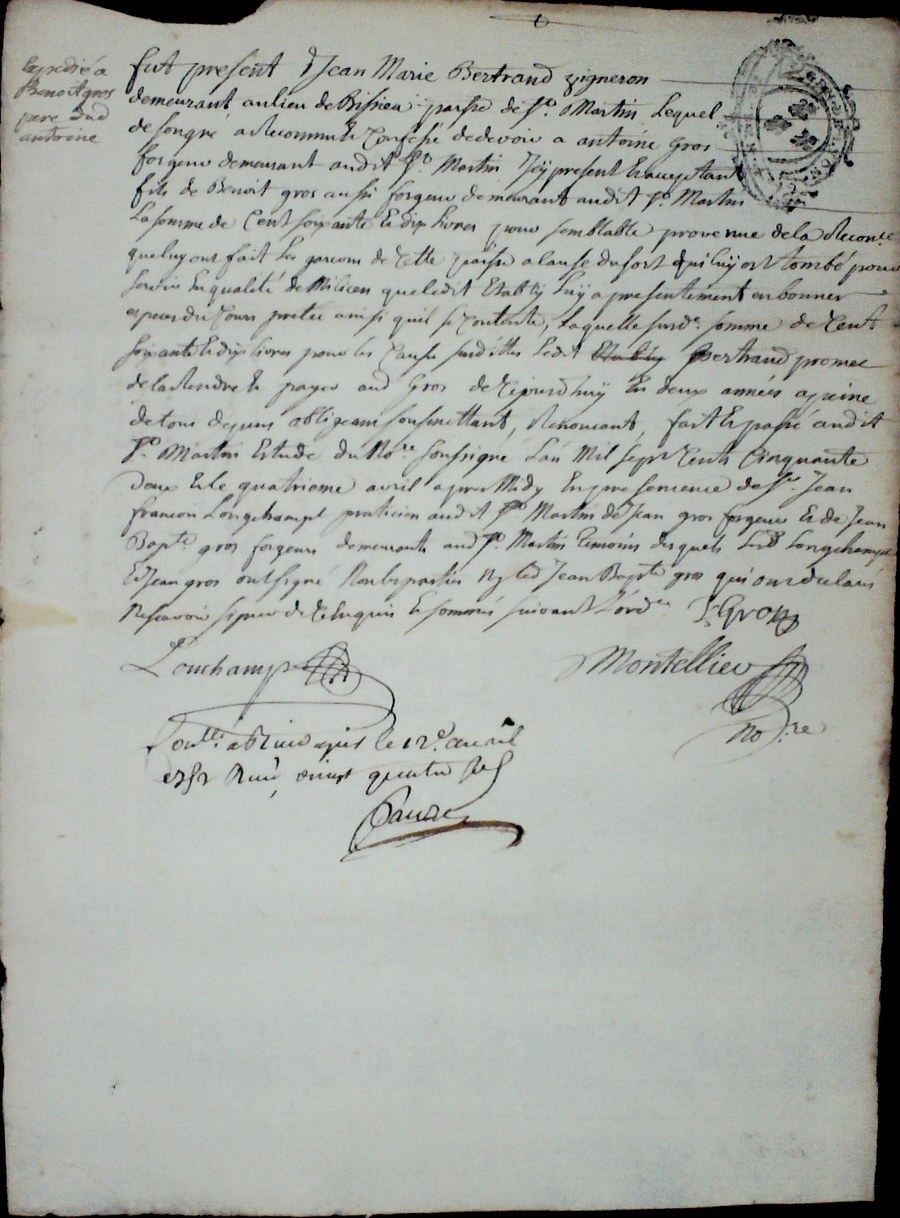 expedié a
Benoit gros
pere dud
antoine
fut present Jean Marie Bertrand vigneron
demeurant au lieu de Bissieu parsse de St. Martin Lequel
de son gré a Reconnu & Confessé de devoir a antoine Gros
forgeur demeurant audit St Martin Icy present & acceptant
fils de Benoit gros aussi forgeur demeurant audit St. Martin
La somme de Cent soixante & dix Livres pour semblable provenue de la
queluy ont fait Les garcons de Cette parsse a Cause du sort qui luy est tombé pour
servir En qualité de Milicien que ledit Etably Luy a presentement en bonnes
especes du Cours pretée ainsi quil se Contente, Laquelle susde. somme de Cent
soixante & dix livres pour les Causes susdittes Ledit Etably Bertrand promet
de la Rendre & payer aud Gros de Cejourdhuy En deux années a peine
de tous depens obligeant soumettant, Renonceant, fait & passé audit
St. Martin Etude du Nore soussigné L'an Mil sept Cents Cinquante
deux & le quatrieme avril apres Midy En presence de Sr Jean
francois Longchampt praticien audit St Martin de Jean gros forgeur & de Jean
Bapte gros forgeur demeurants aud St. Martin temoins desquels Led Longchampt
& Jean gros ont signé Non les parties Ny led Jean Bapte gros qui ont declaré
Ne scavoir signer de Ce Enquis & sommés suivant L'orde
J. Gros
Lonchamp
Montellier
nore
Contlé. a le 12e. avril
1752 Reçu vingt quatre sols